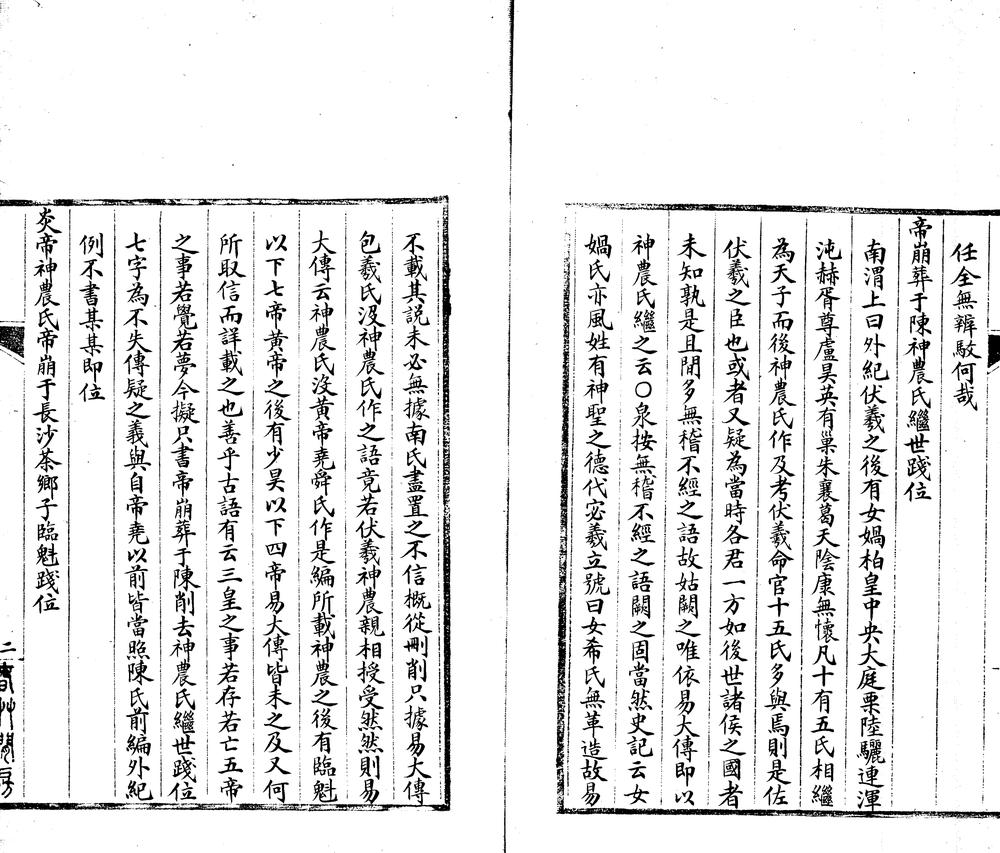 任全無辨駁何哉
帝崩葬于陳神農氏繼世踐位
南渭上曰外紀伏羲之後有女媧柏皇中央大庭栗陸驪連渾
沌赫胥尊盧昊英有巢朱襄葛天陰康無懷凡十有五氏相繼
為天子而後神農氏作及考伏羲命官十五氏多與焉則是佐
伏羲之臣也或者又疑為當時各君一方如後世諸侯之國者
未知孰是且閒多無稽不經之語故姑闕之唯依易大傳即以
神農氏繼之云○泉按無稽不經之語闕之固當然史記云女
媧氏亦風姓有神聖之德代宓羲立號曰女希氏無革造故易
不載其說未必無據南氏盡置之不信概從刪削只據易大傳
包羲氏沒神農氏作之語竟若伏羲神農親相授受然然則易
大傳云神農氏沒黃帝堯舜氏作是編所載神農之後有臨魁
以下七帝黃帝之後有少昊以下四帝易大傳皆未之及又何
所取信而詳載之也善乎古語有云三皇之事若存若亡五帝
之事若覺若夢今擬只書帝崩葬于陳削去神農氏繼世踐位
七字為不失傳疑之義與自帝堯以前皆當照陳氏前編外紀
例不書某某即位
炎帝神農氏帝崩于長沙茶鄉子臨魁踐位
二